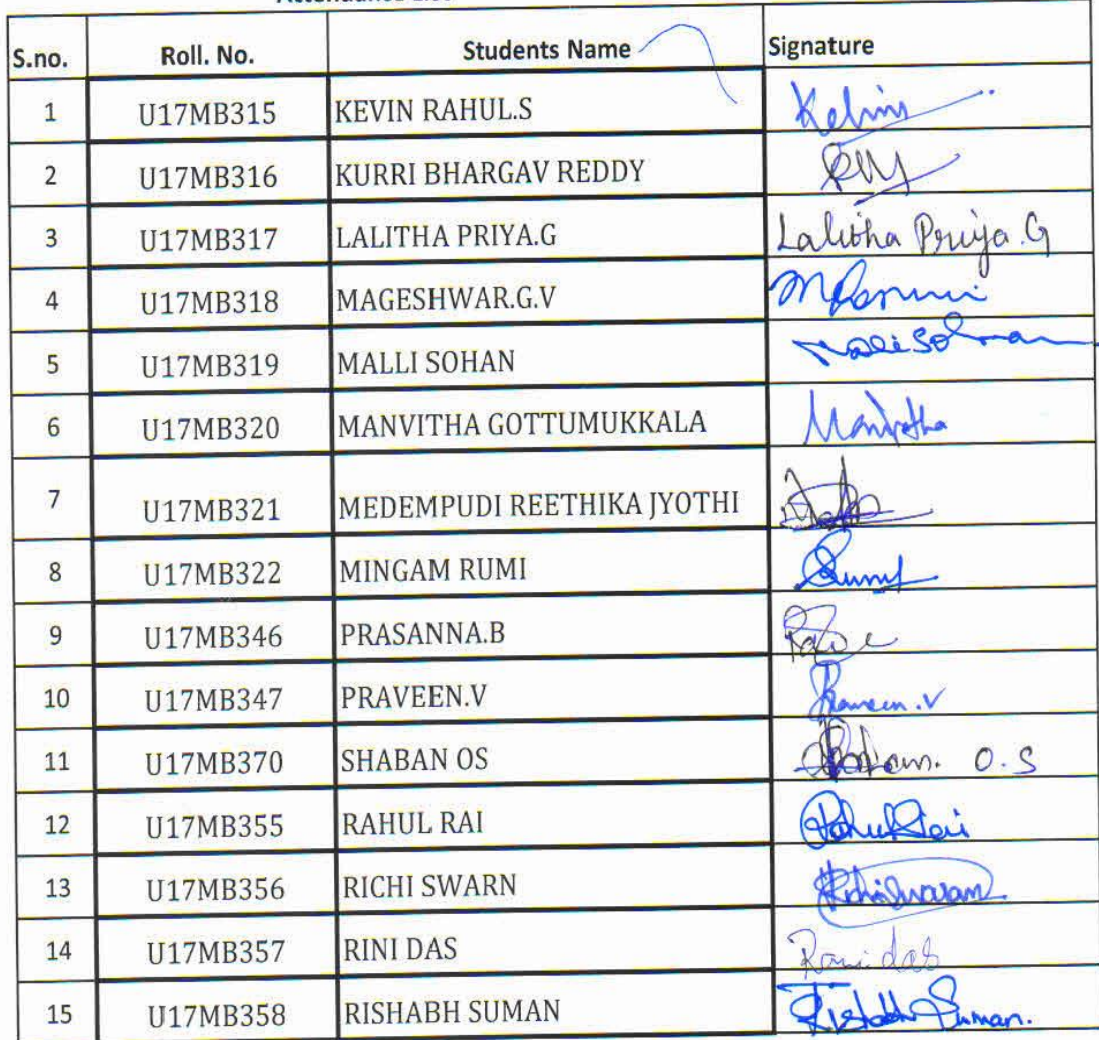 S.no. Roll. No. Students Name Signature
1 U17MB315 KEVIN RAHUL.S Kelvin
2 U17MB316 KURRI BHARGAV REDDY
3 U17MB317 LALITHA PRIYA.G Lalitha Priya.G
4 U17MB318 MAGESHWAR.G.V
5 U17MB319 MALLI SOHAN Malli Sohan
6 U17MB320 MANVITHA GOTTUMUKKALA Manvitha
7 U17MB321 MEDEMPUDI REETHIKA JYOTHI
8 U17MB322 MINGAM RUMI
9 U17MB346 PRASANNA.B
10 U17MB347 PRAVEEN.V Praveen.V
11 U17MB370 SHABAN OS O.S
12 U17MB355 RAHUL RAI Rahul Rai
13 U17MB356 RICHI SWARN
14 U17MB357 RINI DAS Rini das
15 U17MB358 RISHABH SUMAN Rishabh Suman.